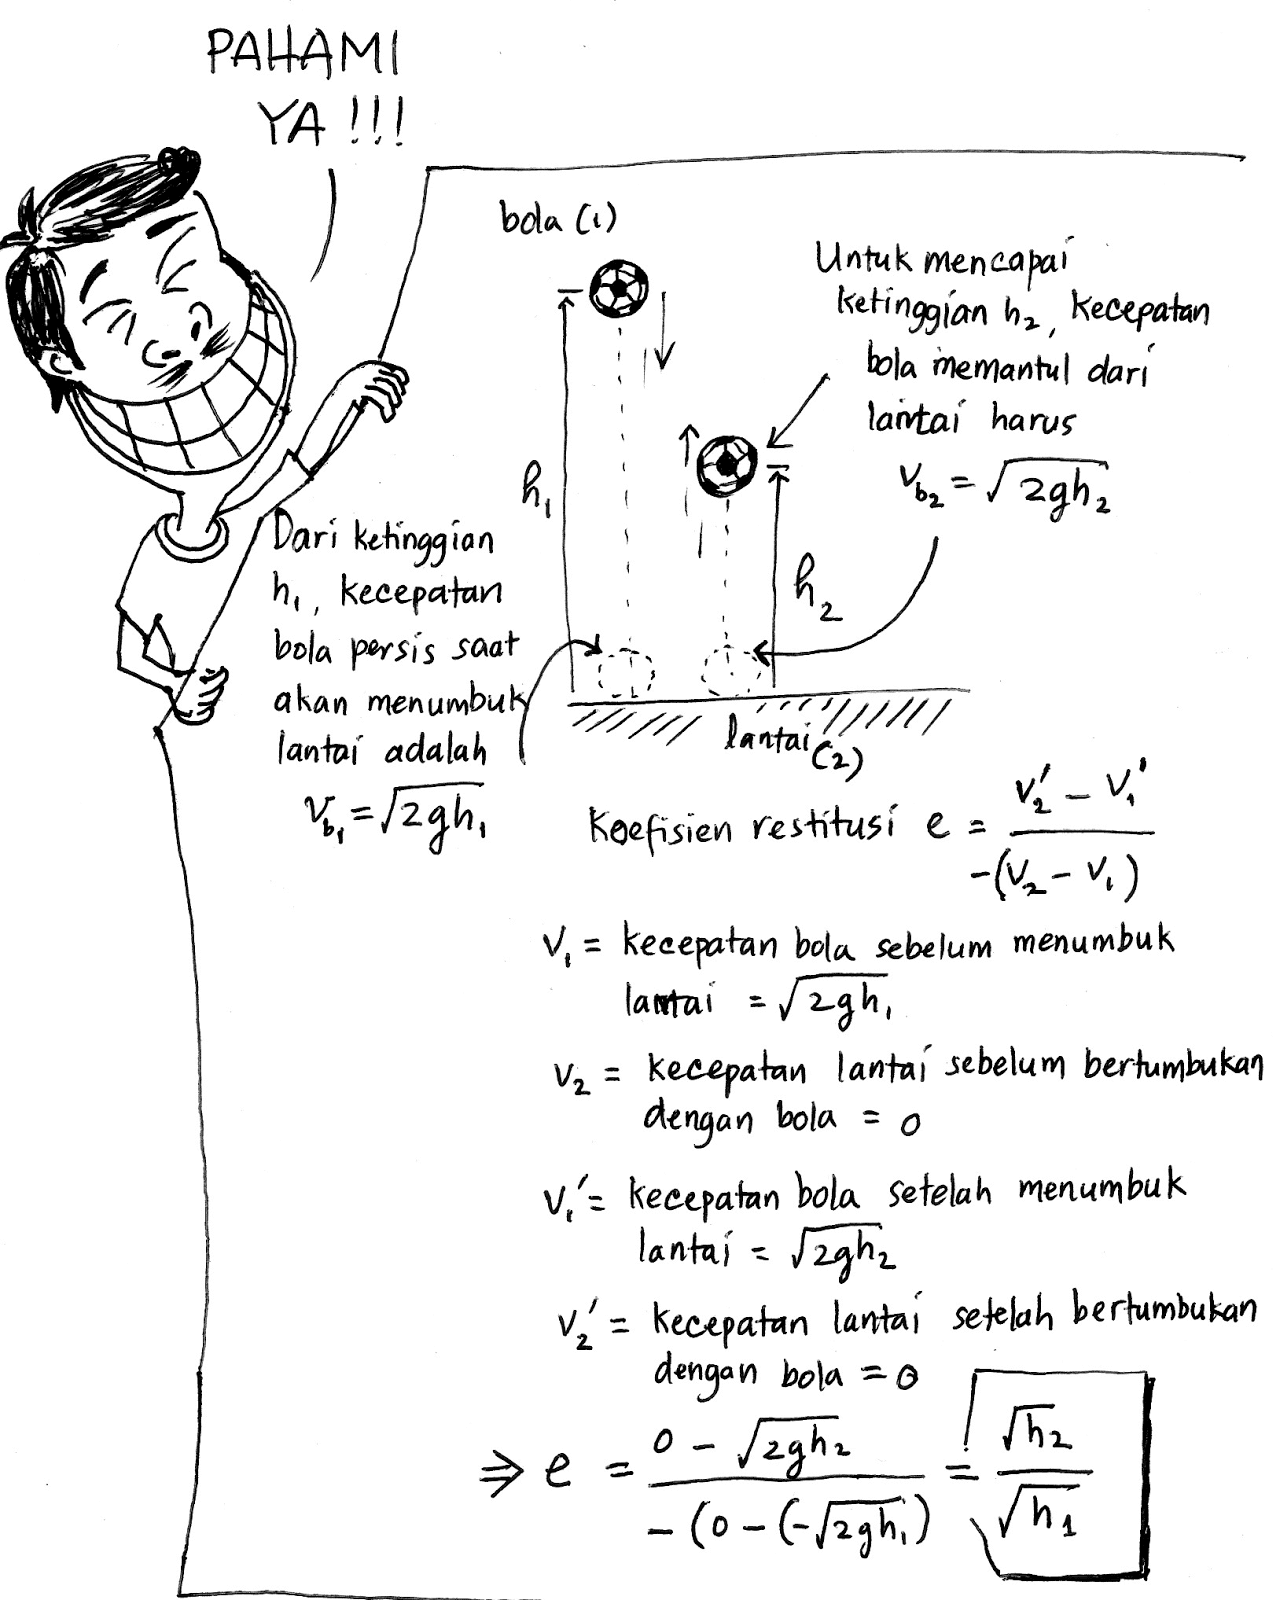 PAHAMI
YA !!!
bola (1)
Untuk mencapai
ketinggian h₂, kecepatan
bola memantul dari
lantai harus
v_b₂ = √2gh₂
h₁
h₂
Dari ketinggian
h₁, kecepatan
bola persis saat
akan menumbuk
lantai adalah
v_b₁ = √2gh₁
lantai (2)
Koefisien restitusi e = (v₂' - v₁') / -(v₂ - v₁)
v₁ = kecepatan bola sebelum menumbuk
lantai = √2gh₁
v₂ = kecepatan lantai sebelum bertumbukan
dengan bola = 0
v₁' = kecepatan bola setelah menumbuk
lantai = √2gh₂
v₂' = kecepatan lantai setelah bertumbukan
dengan bola = 0
⇒ e = (0 - √2gh₂) / -(0 - (-√2gh₁) = √h₂ / √h₁